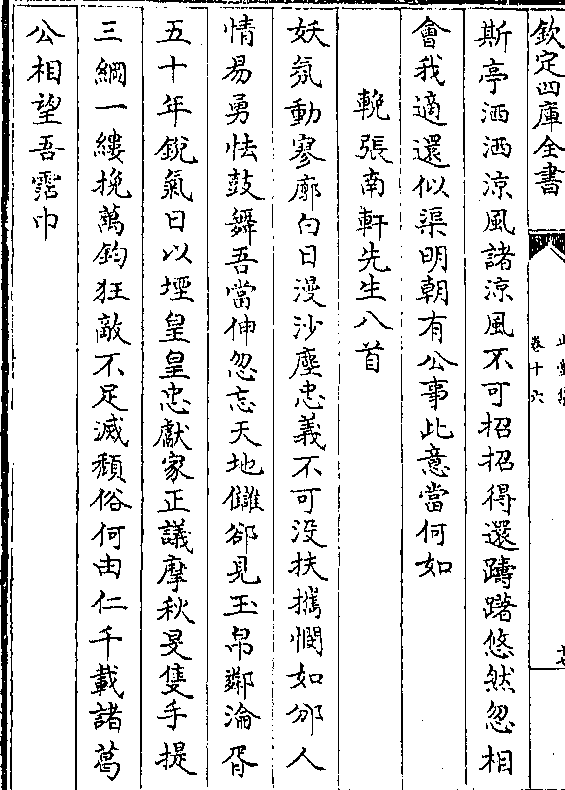 欽定四庫全書
卷十六
斯亭洒洒涼風諸涼風不可招招得還躊躇悠然忽相
會我適還似渠明朝有公事此意當何如
輓張南軒先生八首
妖氛動寥廓白日漫沙塵忠義不可没扶攜惘如邠人
情易勇怯鼓舞吾當伸忽忘天地讎郤見玉帛鄰淪胥
五十年銳氣日以堙皇皇忠獻家正議摩秋旻隻手提
三綱一縷挽萬鈞狂敵不足滅頽俗何由仁千載諸葛
公相望吾霑巾